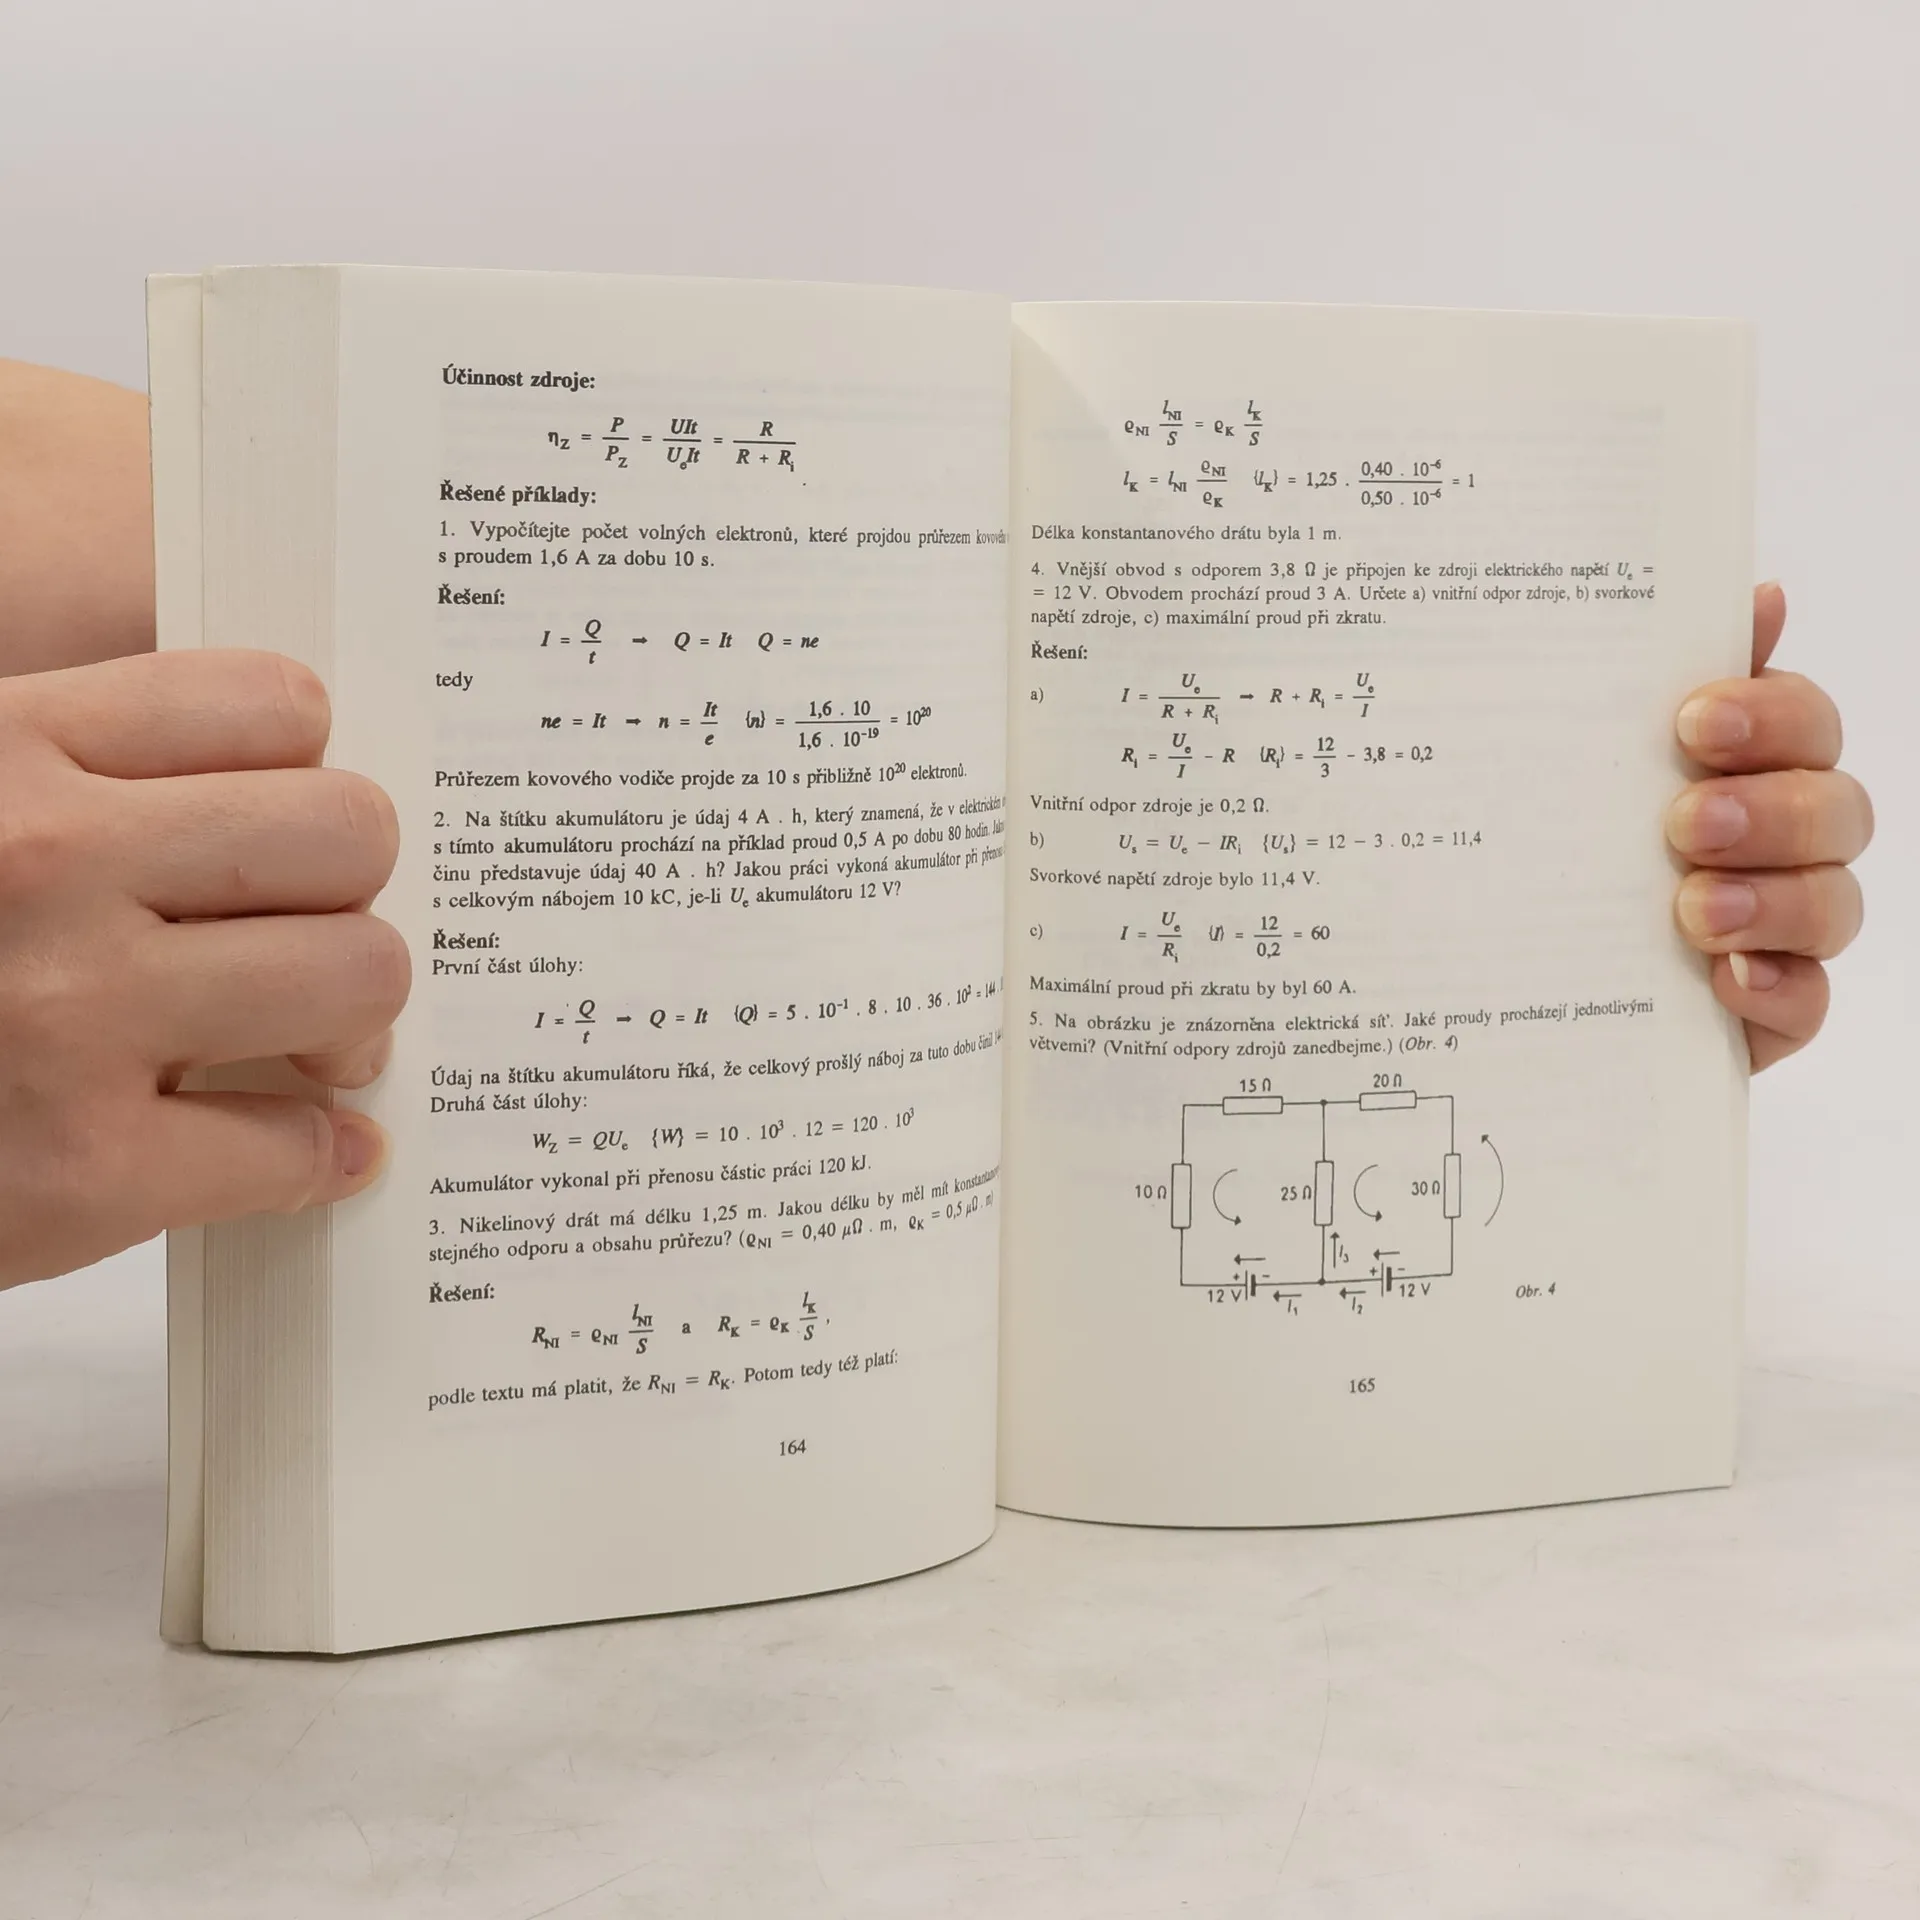 Účinnost zdroje:
η_Z = P/P_Z = UIt/U_eIt = R/(R + R_i)
Řešené příklady:
1. Vypočítejte počet volných elektronů, které projdou průřezem
s proudem 1,6 A za dobu 10 s.
Řešení:
I = Q/t → Q = It Q = ne
tedy
ne = It → n = It/e {n} = (1,6 . 10)/(1,6 . 10⁻¹⁹) = 10²⁰
Průřezem kovového vodiče projde za 10 s přibližně 10²⁰ elektronů.
2. Na štítku akumulátoru je údaj 4 A . h, který znamená, že v
s tímto akumulátoru prochází na příklad proud 0,5 A po dobu 80 hodin.
činu představuje údaj 40 A . h? Jakou práci vykoná akumulátor při
s celkovým nábojem 10 kC, je-li U_e akumulátoru 12 V?
Řešení:
První část úlohy:
I = Q/t → Q = It {Q} = 5 . 10⁻¹ . 8 . 10 . 36 . 10² = 144 .
Údaj na štítku akumulátoru říká, že celkový prošlý náboj za tuto dobu činil
Druhá část úlohy:
W_Z = QU_e {W} = 10 . 10³ . 12 = 120 . 10³
Akumulátor vykonal při přenosu částic práci 120 kJ.
3. Nikelinový drát má délku 1,25 m. Jakou délku by měl mít
stejného odporu a obsahu průřezu? (ϱ_NI = 0,40 μΩ . m, ϱ_K = 0,5 μΩ . m)
Řešení:
R_NI = ϱ_NI l_NI/S a R_K = ϱ_K l_K/S ,
podle textu má platit, že R_NI = R_K. Potom tedy též platí:
164
ϱ_NI l_NI/S = ϱ_K l_K/S
l_K = l_NI ϱ_NI/ϱ_K {l_K} = 1,25 . (0,40 . 10⁻⁶)/(0,50 . 10⁻⁶) = 1
Délka konstantanového drátu byla 1 m.
4. Vnější obvod s odporem 3,8 Ω je připojen ke zdroji elektrického napětí U_e =
= 12 V. Obvodem prochází proud 3 A. Určete a) vnitřní odpor zdroje, b) svorkové
napětí zdroje, c) maximální proud při zkratu.
Řešení:
a) I = U_e/(R + R_i) → R + R_i = U_e/I
R_i = U_e/I - R {R_i} = 12/3 - 3,8 = 0,2
Vnitřní odpor zdroje je 0,2 Ω.
b) U_s = U_e − IR_i {U_s} = 12 − 3 . 0,2 = 11,4
Svorkové napětí zdroje bylo 11,4 V.
c) I = U_e/R_i {I} = 12/0,2 = 60
Maximální proud při zkratu by byl 60 A.
5. Na obrázku je znázorněna elektrická síť. Jaké proudy procházejí jednotlivými
větvemi? (Vnitřní odpory zdrojů zanedbejme.) (Obr. 4)
15 Ω 20 Ω
10 Ω 25 Ω 30 Ω
I₃
+ − + −
12 V I₁ I₂ 12 V
Obr. 4
165